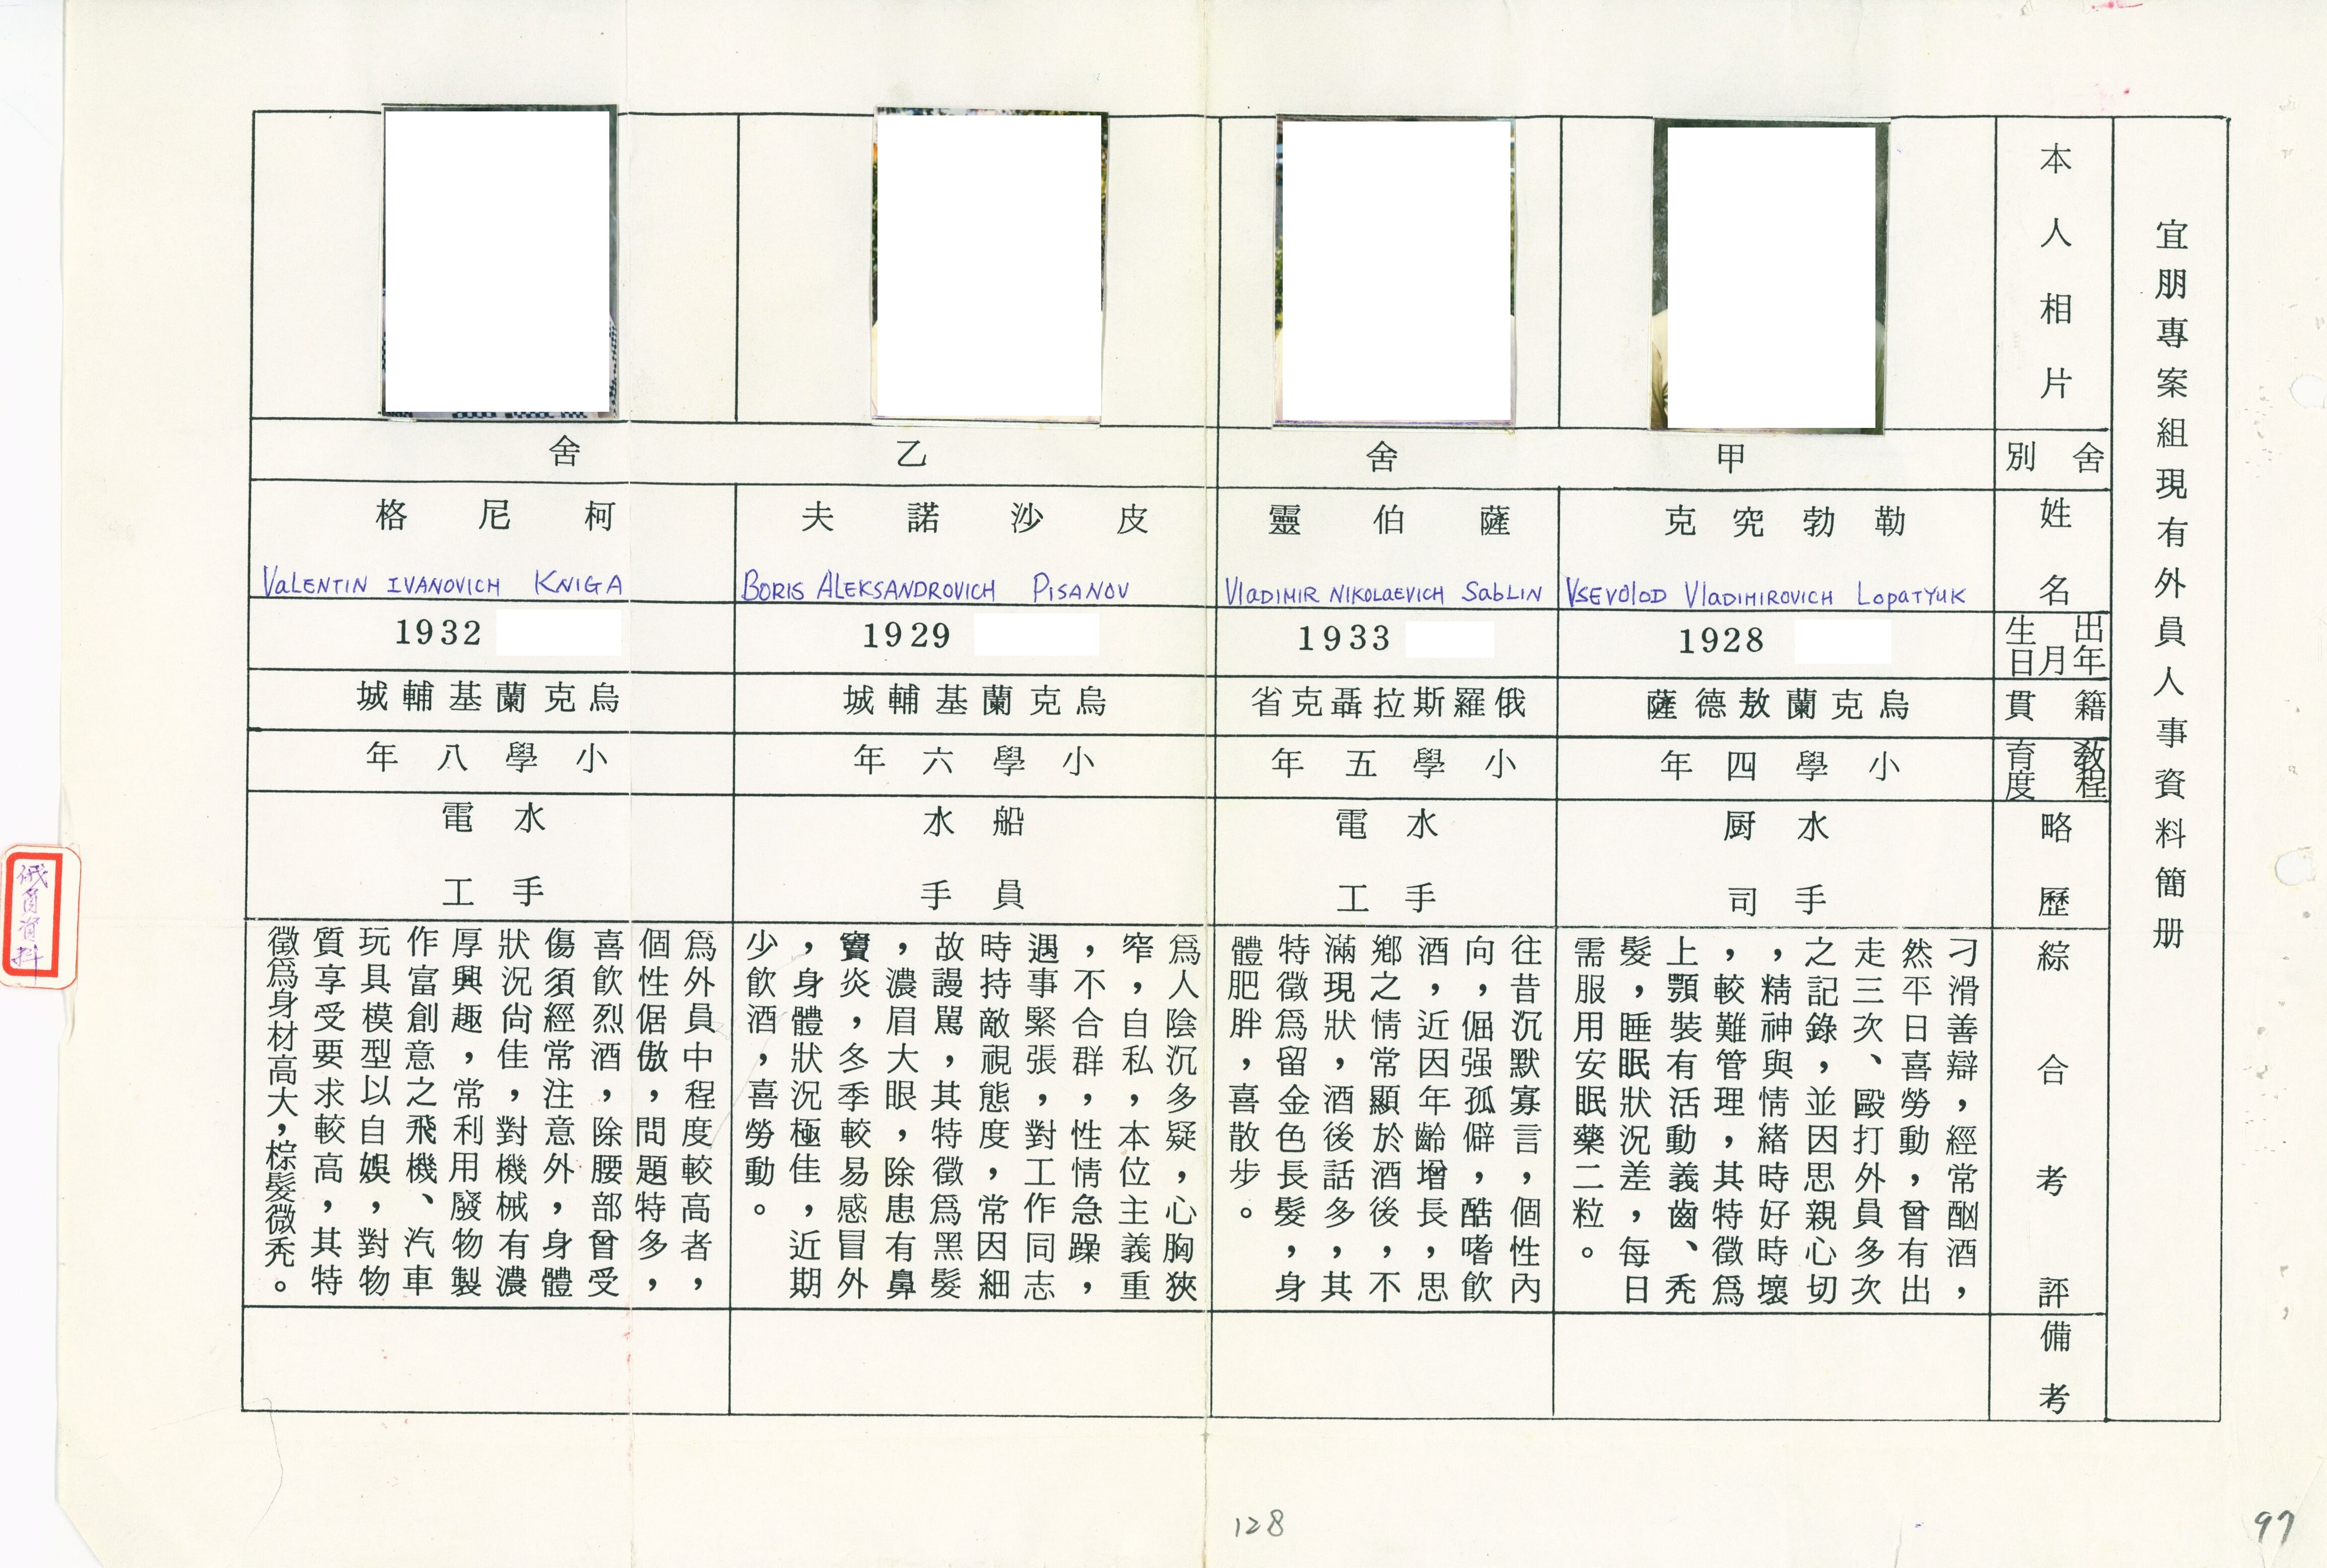 宜朋專案組現有外員人事資料簡册
本人相片
舍別
甲舍
乙舍
姓名
勒勃究克
Vsevolod Vladimirovich Lopatyuk
薩伯靈
Vladimir Nikolaevich Sablin
皮沙諾夫
Boris Aleksandrovich Pisanov
柯尼格
Valentin Ivanovich Kniga
出生年月日
1928
1933
1929
1932
籍貫
烏克蘭敖德薩
俄羅斯拉聶克省
烏克蘭基輔城
烏克蘭基輔城
教育程度
小學四年
小學五年
小學六年
小學八年
略歷
水手
厨司
水手
電工
船員
水手
水手
電工
綜合考評
刁滑善辯，經常酗酒，
然平日喜勞動，曾有出
走三次、毆打外員多次
之記錄，並因思親心切
，精神與情緒時好時壞
，較難管理，其特徵爲
上顎裝有活動義齒、禿
髮，睡眠狀況差，每日
需服用安眠藥二粒。
往昔沉默寡言，個性內
向，倔强孤僻，酷嗜飲
酒，近因年齡增長，思
鄉之情常顯於酒後，不
滿現狀，酒後話多，其
特徵爲留金色長髮，身
體肥胖，喜散步。
爲人陰沉多疑，心胸狹
窄，自私，本位主義重
，不合群，性情急躁，
遇事緊張，對工作同志
時持敵視態度，常因細
故謾罵，其特徵爲黑髮
，濃眉大眼，除患有鼻
竇炎，冬季較易感冒外
，身體狀況極佳，近期
少飲酒，喜勞動。
爲外員中程度較高者，
個性倨傲，問題特多，
喜飲烈酒，除腰部曾受
傷須經常注意外，身體
狀況尚佳，對機械有濃
厚興趣，常利用廢物製
作富創意之飛機、汽車
玩具模型以自娛，對物
質享受要求較高，其特
徵爲身材高大，棕髮微禿。
備考
俄員資料
128
97